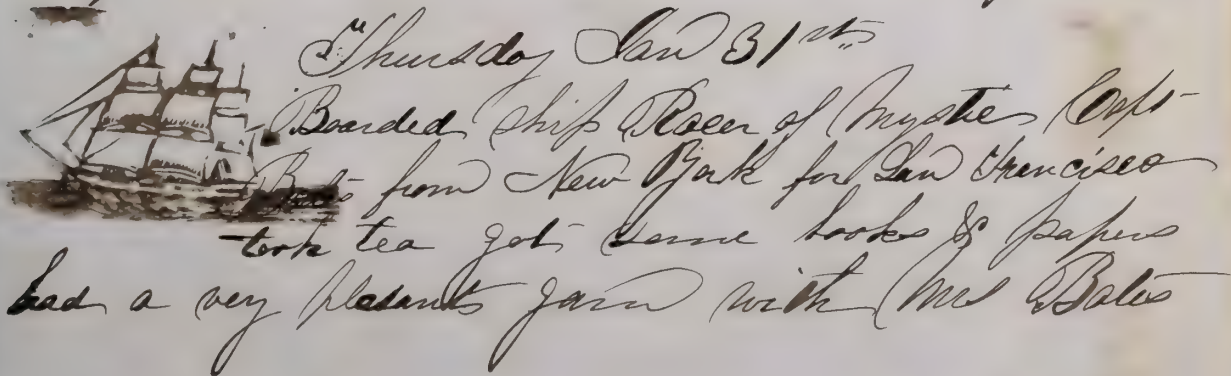 Thursday Jan 31st
Boarded ship Racer of Mystic Capt
Bates from New York for San Francisco
took tea got some books & papers
had a very plesant yarn with Mrs Bates